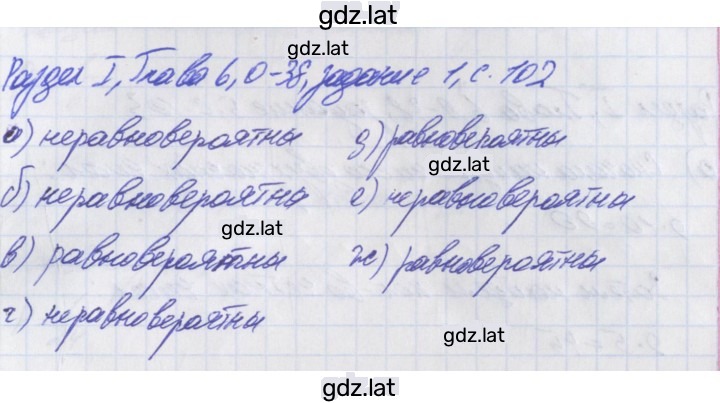 gdz.lat
gdz.lat
Раздел I, Глава 6, О-38, задание 1, с. 102
а) неравновероятны
б) неравновероятны
в) равновероятны
г) неравновероятны
д) равновероятны
gdz.lat
е) неравновероятны
gdz.lat
ж) равновероятны
gdz.lat
gdz.lat